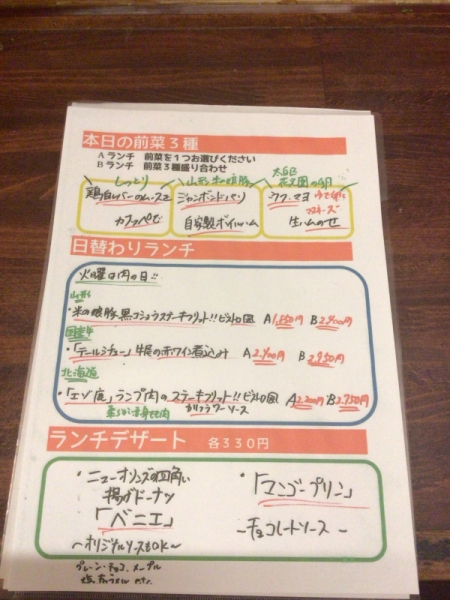 本日の前菜3種
Aランチ 前菜を1つお選びください
Bランチ 前菜3種盛り合わせ
しっとり
鶏白レバーのムースを
カナッペで
山形 米の娘豚
ジャンボンドパリ
自家製ボイルハム
太白
花文図の卵
ウフ・マヨ
生ハムのせ
日替わりランチ
火曜日肉の日!!
山形
・米の娘豚、黒コショウステーキフリット!!ビストロ風 A1,850円 B2,400円
国産牛
・「テールシチュー」牛尾の赤ワイン煮込み A2,400円 B2,950円
北海道
・「エゾ鹿」ランプ肉のステーキフリット!!ビストロ風 A2,200円 B2,750円
カリフラワーソース
ランチデザート 各330円
・ニューオリンズの四角い
揚げドーナツ
「ベニエ」
〜オリジナルソースもOK〜
プレーン・チョコ、メープル
塩キャラメル etc.
・「マンゴープリン」
〜チョコレートソース〜